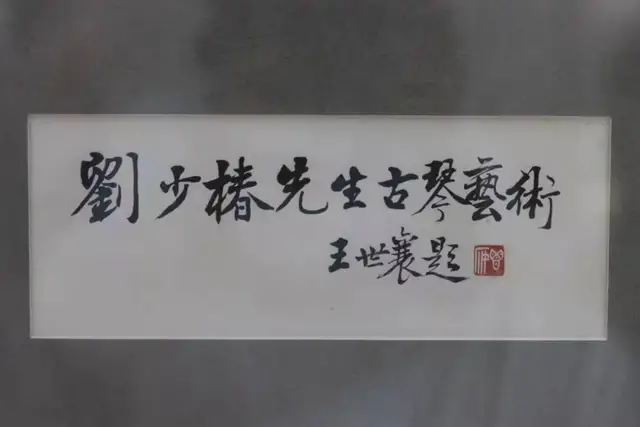 劉少椿先生古琴藝術
王世襄題